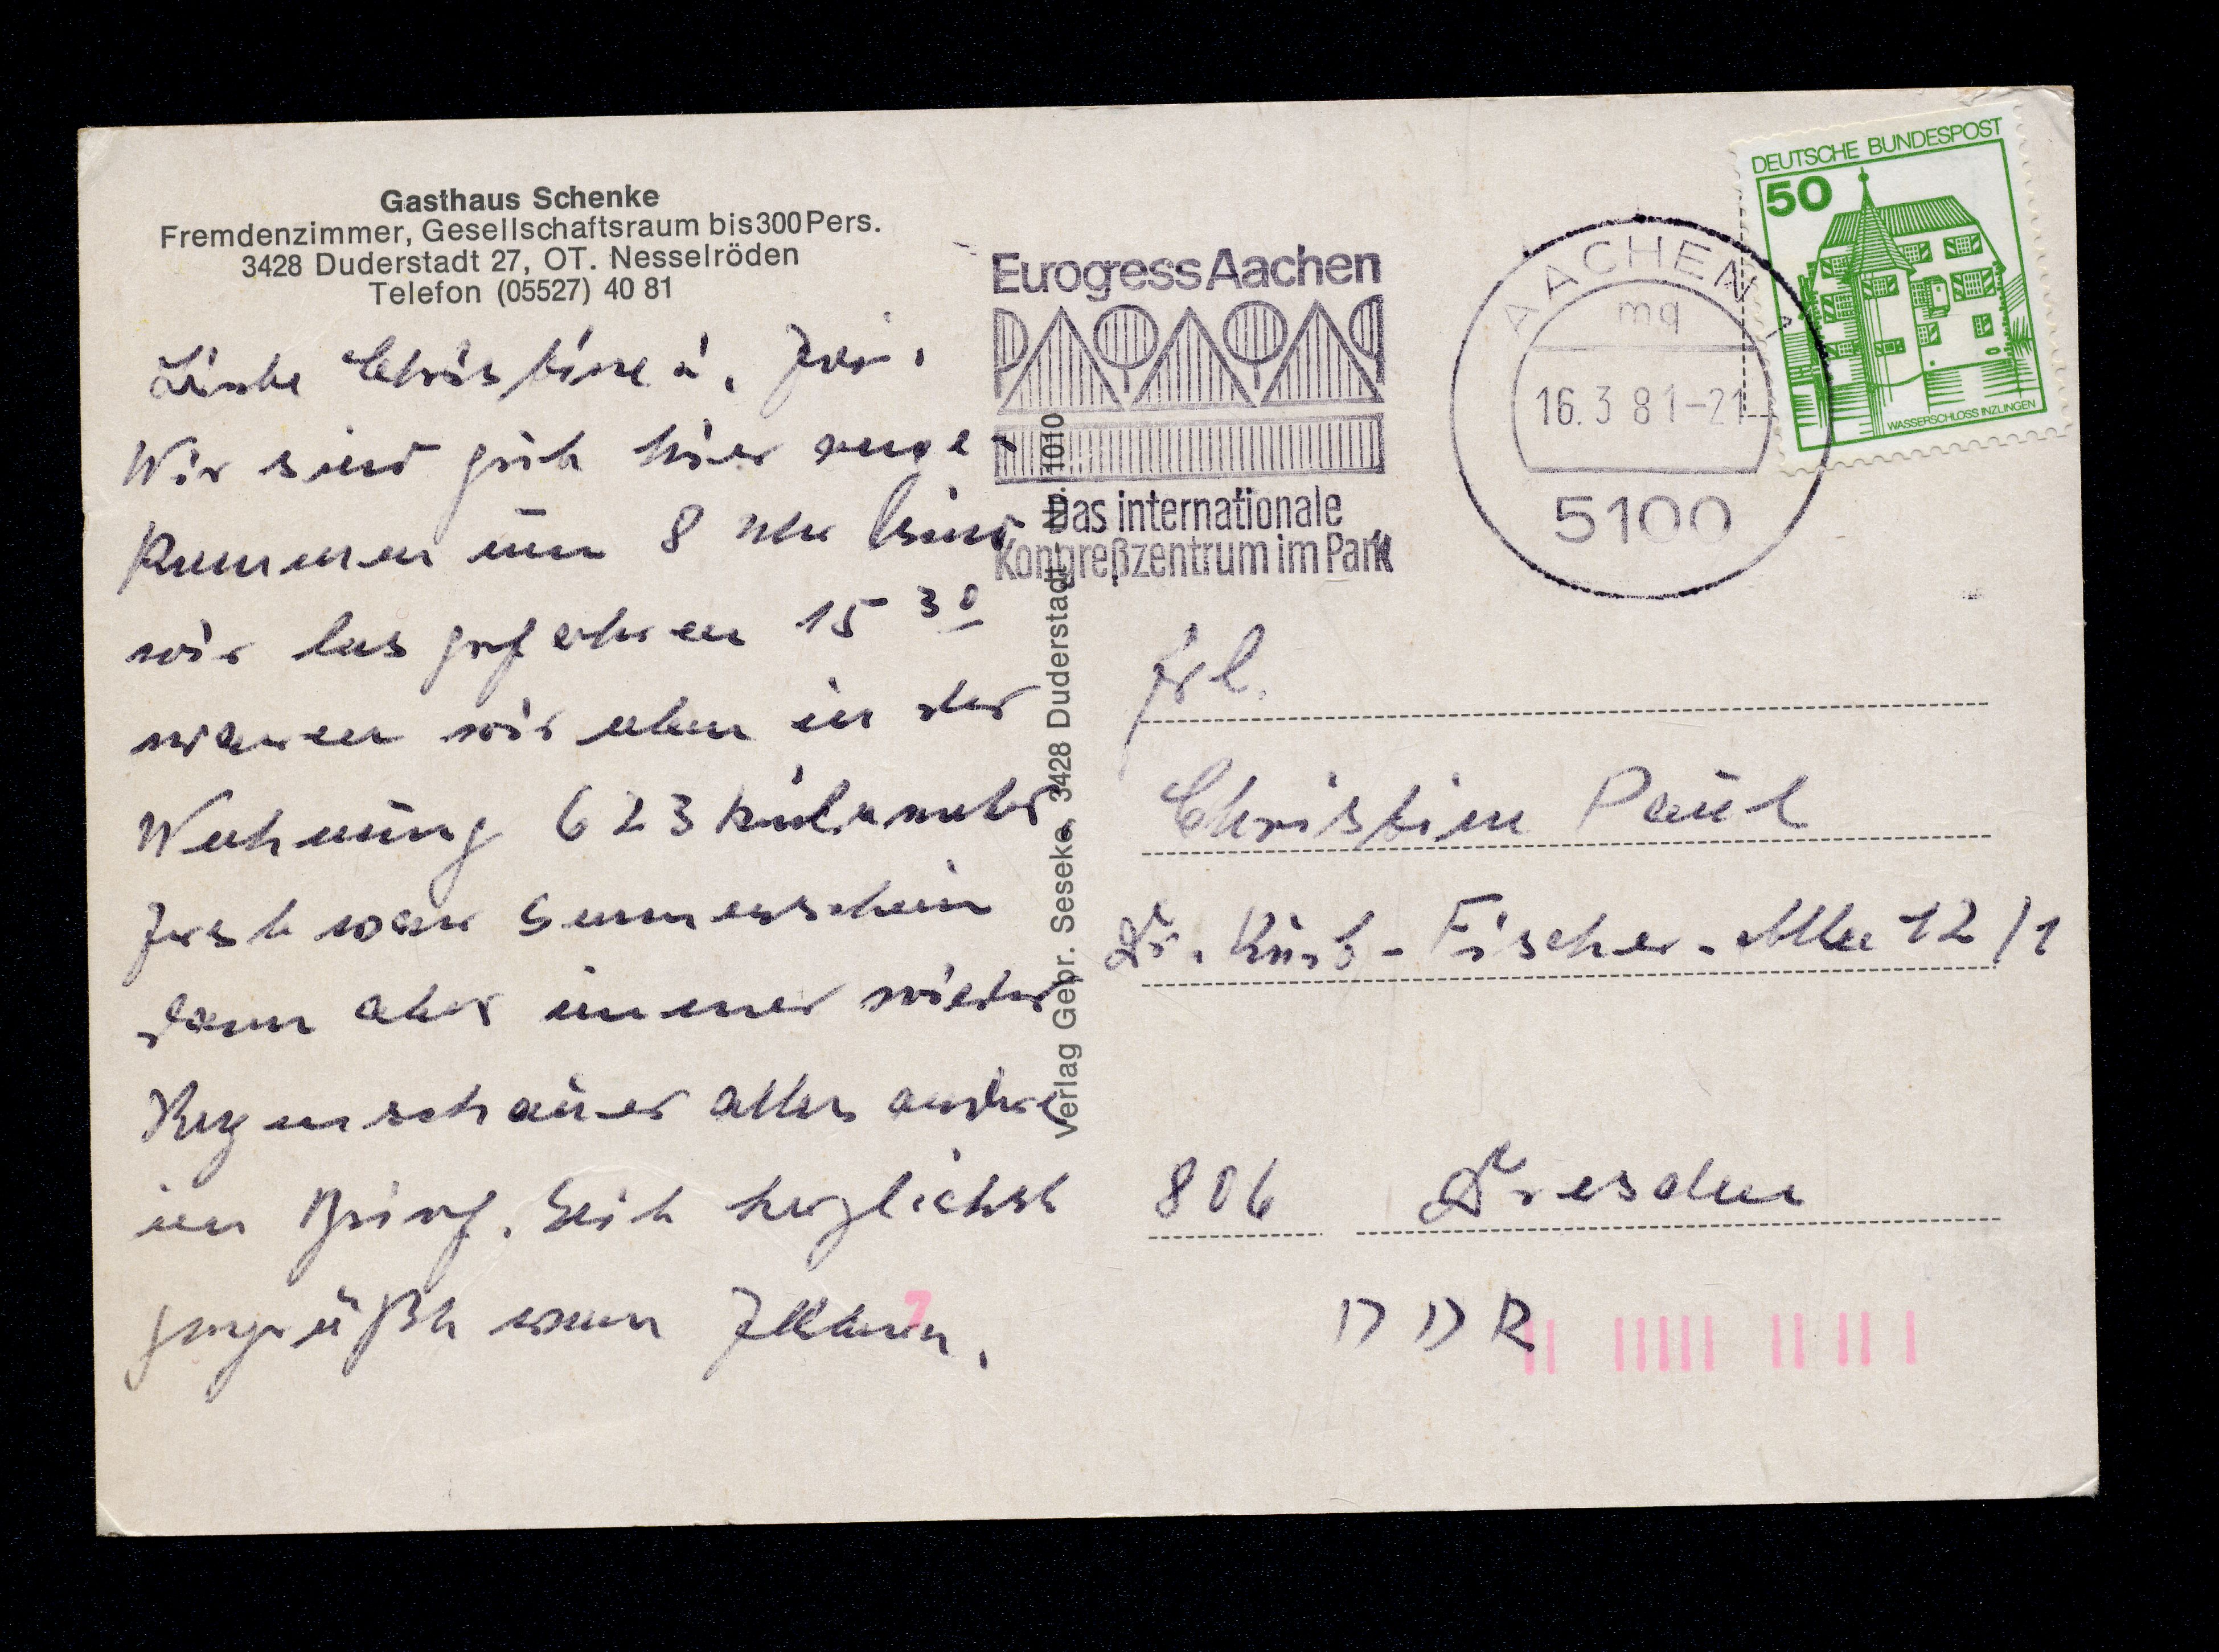 Gasthaus Schenke
Fremdenzimmer, Gesellschaftsraum bis 300 Pers.
3428 Duderstadt 27, OT. Nesselröden
Telefon (05527) 40 81
Liebe Christine u.
Wir sind gut hier ange-
kommen um 8 Uhr sind
wir losgefahren 15 30
waren wir oben in der
Wohnung 623 Kilometer
Erst war Sonnenschein
dann aber immer wieder
Regenschauer alles andre
im Brief. Seit herzlichst
gegrüßt von
Verlag Gebr. Seseke, 3428 Duderstadt - Nr. 1010
Eurogress Aachen
Das internationale
Kongreßzentrum im Park
AACHEN 1
mq
16.3.81-21
5100
DEUTSCHE BUNDESPOST
50
WASSERSCHLOSS INZLINGEN
Frl.
Christine Paul
Dr. Kurt-Fischer-Allee 12/1
806 Dresden
DDR